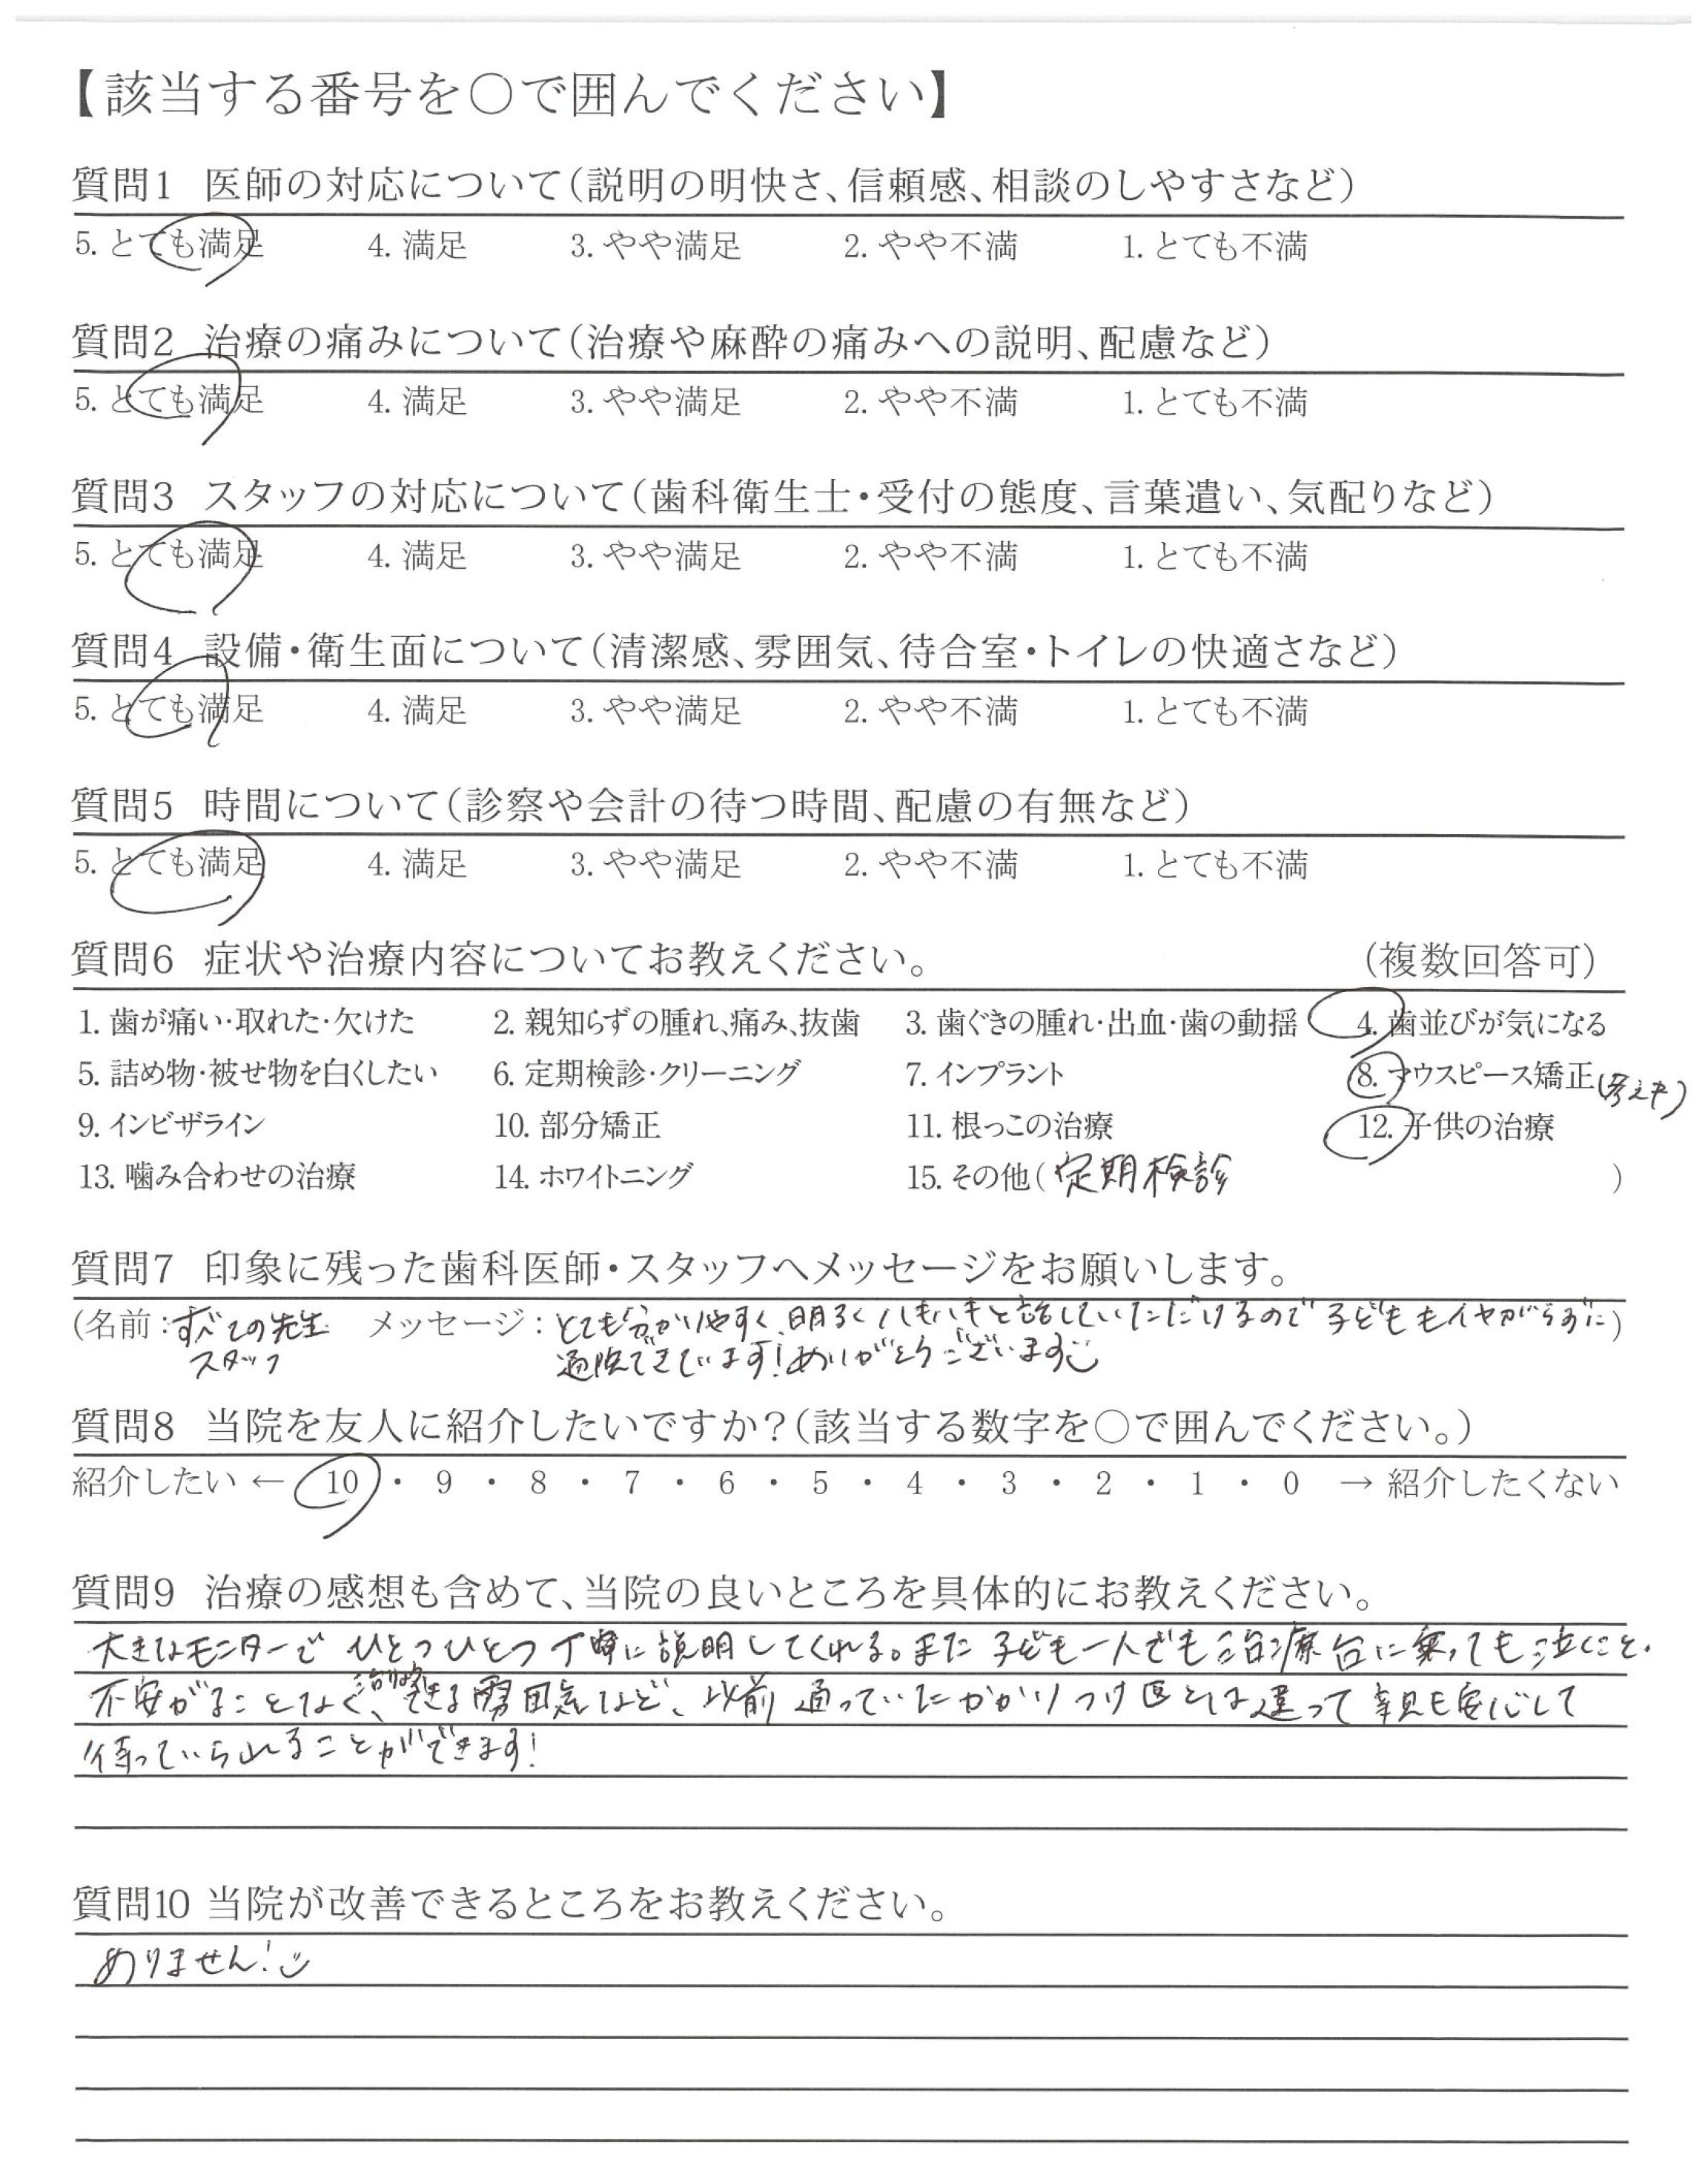 【該当する番号を○で囲んでください】
質問1 医師の対応について(説明の明快さ、信頼感、相談のしやすさなど)
5. とても満足 4. 満足 3. やや満足 2. やや不満 1. とても不満
質問2 治療の痛みについて(治療や麻酔の痛みへの説明、配慮など)
5. とても満足 4. 満足 3. やや満足 2. やや不満 1. とても不満
質問3 スタッフの対応について(歯科衛生士・受付の態度、言葉遣い、気配りなど)
5. とても満足 4. 満足 3. やや満足 2. やや不満 1. とても不満
質問4 設備・衛生面について(清潔感、雰囲気、待合室・トイレの快適さなど)
5. とても満足 4. 満足 3. やや満足 2. やや不満 1. とても不満
質問5 時間について(診察や会計の待つ時間、配慮の有無など)
5. とても満足 4. 満足 3. やや満足 2. やや不満 1. とても不満
質問6 症状や治療内容についてお教えください。 (複数回答可)
1. 歯が痛い・取れた・欠けた 2. 親知らずの腫れ、痛み、抜歯 3. 歯ぐきの腫れ・出血・歯の動揺 4. 歯並びが気になる
5. 詰め物・被せ物を白くしたい 6. 定期検診・クリーニング 7. インプラント 8. マウスピース矯正(考え中)
9. インビザライン 10. 部分矯正 11. 根っこの治療 12. 子供の治療
13. 噛み合わせの治療 14. ホワイトニング 15. その他(定期検診)
質問7 印象に残った歯科医師・スタッフへメッセージをお願いします。
(名前:すべての先生 メッセージ:とても分かりやすく、明るくハキハキと話していただけるので子どももイヤがらずに)
スタッフ 通院できています!ありがとうございます
質問8 当院を友人に紹介したいですか?(該当する数字を○で囲んでください。)
紹介したい ← 10 ・ 9 ・ 8 ・ 7 ・ 6 ・ 5 ・ 4 ・ 3 ・ 2 ・ 1 ・ 0 → 紹介したくない
質問9 治療の感想も含めて、当院の良いところを具体的にお教えください。
大きなモニターで ひとつひとつ丁寧に説明してくれる。また 子ども一人でも治療台に乗っても泣くこと、
不安がることなく、治療できる雰囲気など、以前通っていたかかりつけ医とは違って親も安心して
待っていられることができます!
質問10 当院が改善できるところをお教えください。
ありません!